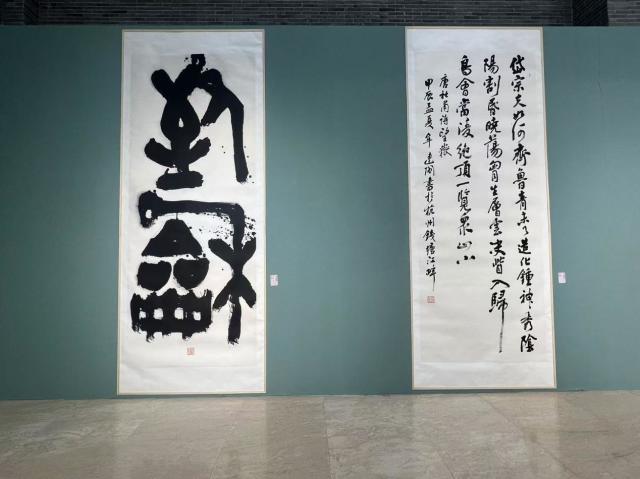 岱宗夫如何齊魯青未了造化鍾神秀陰
陽割昏曉蕩胷生層雲決眥入歸
鳥會當凌絕頂一覽眾山小
唐杜甫詩望嶽
甲辰孟夏年書於杭州錢塘江畔
致龢